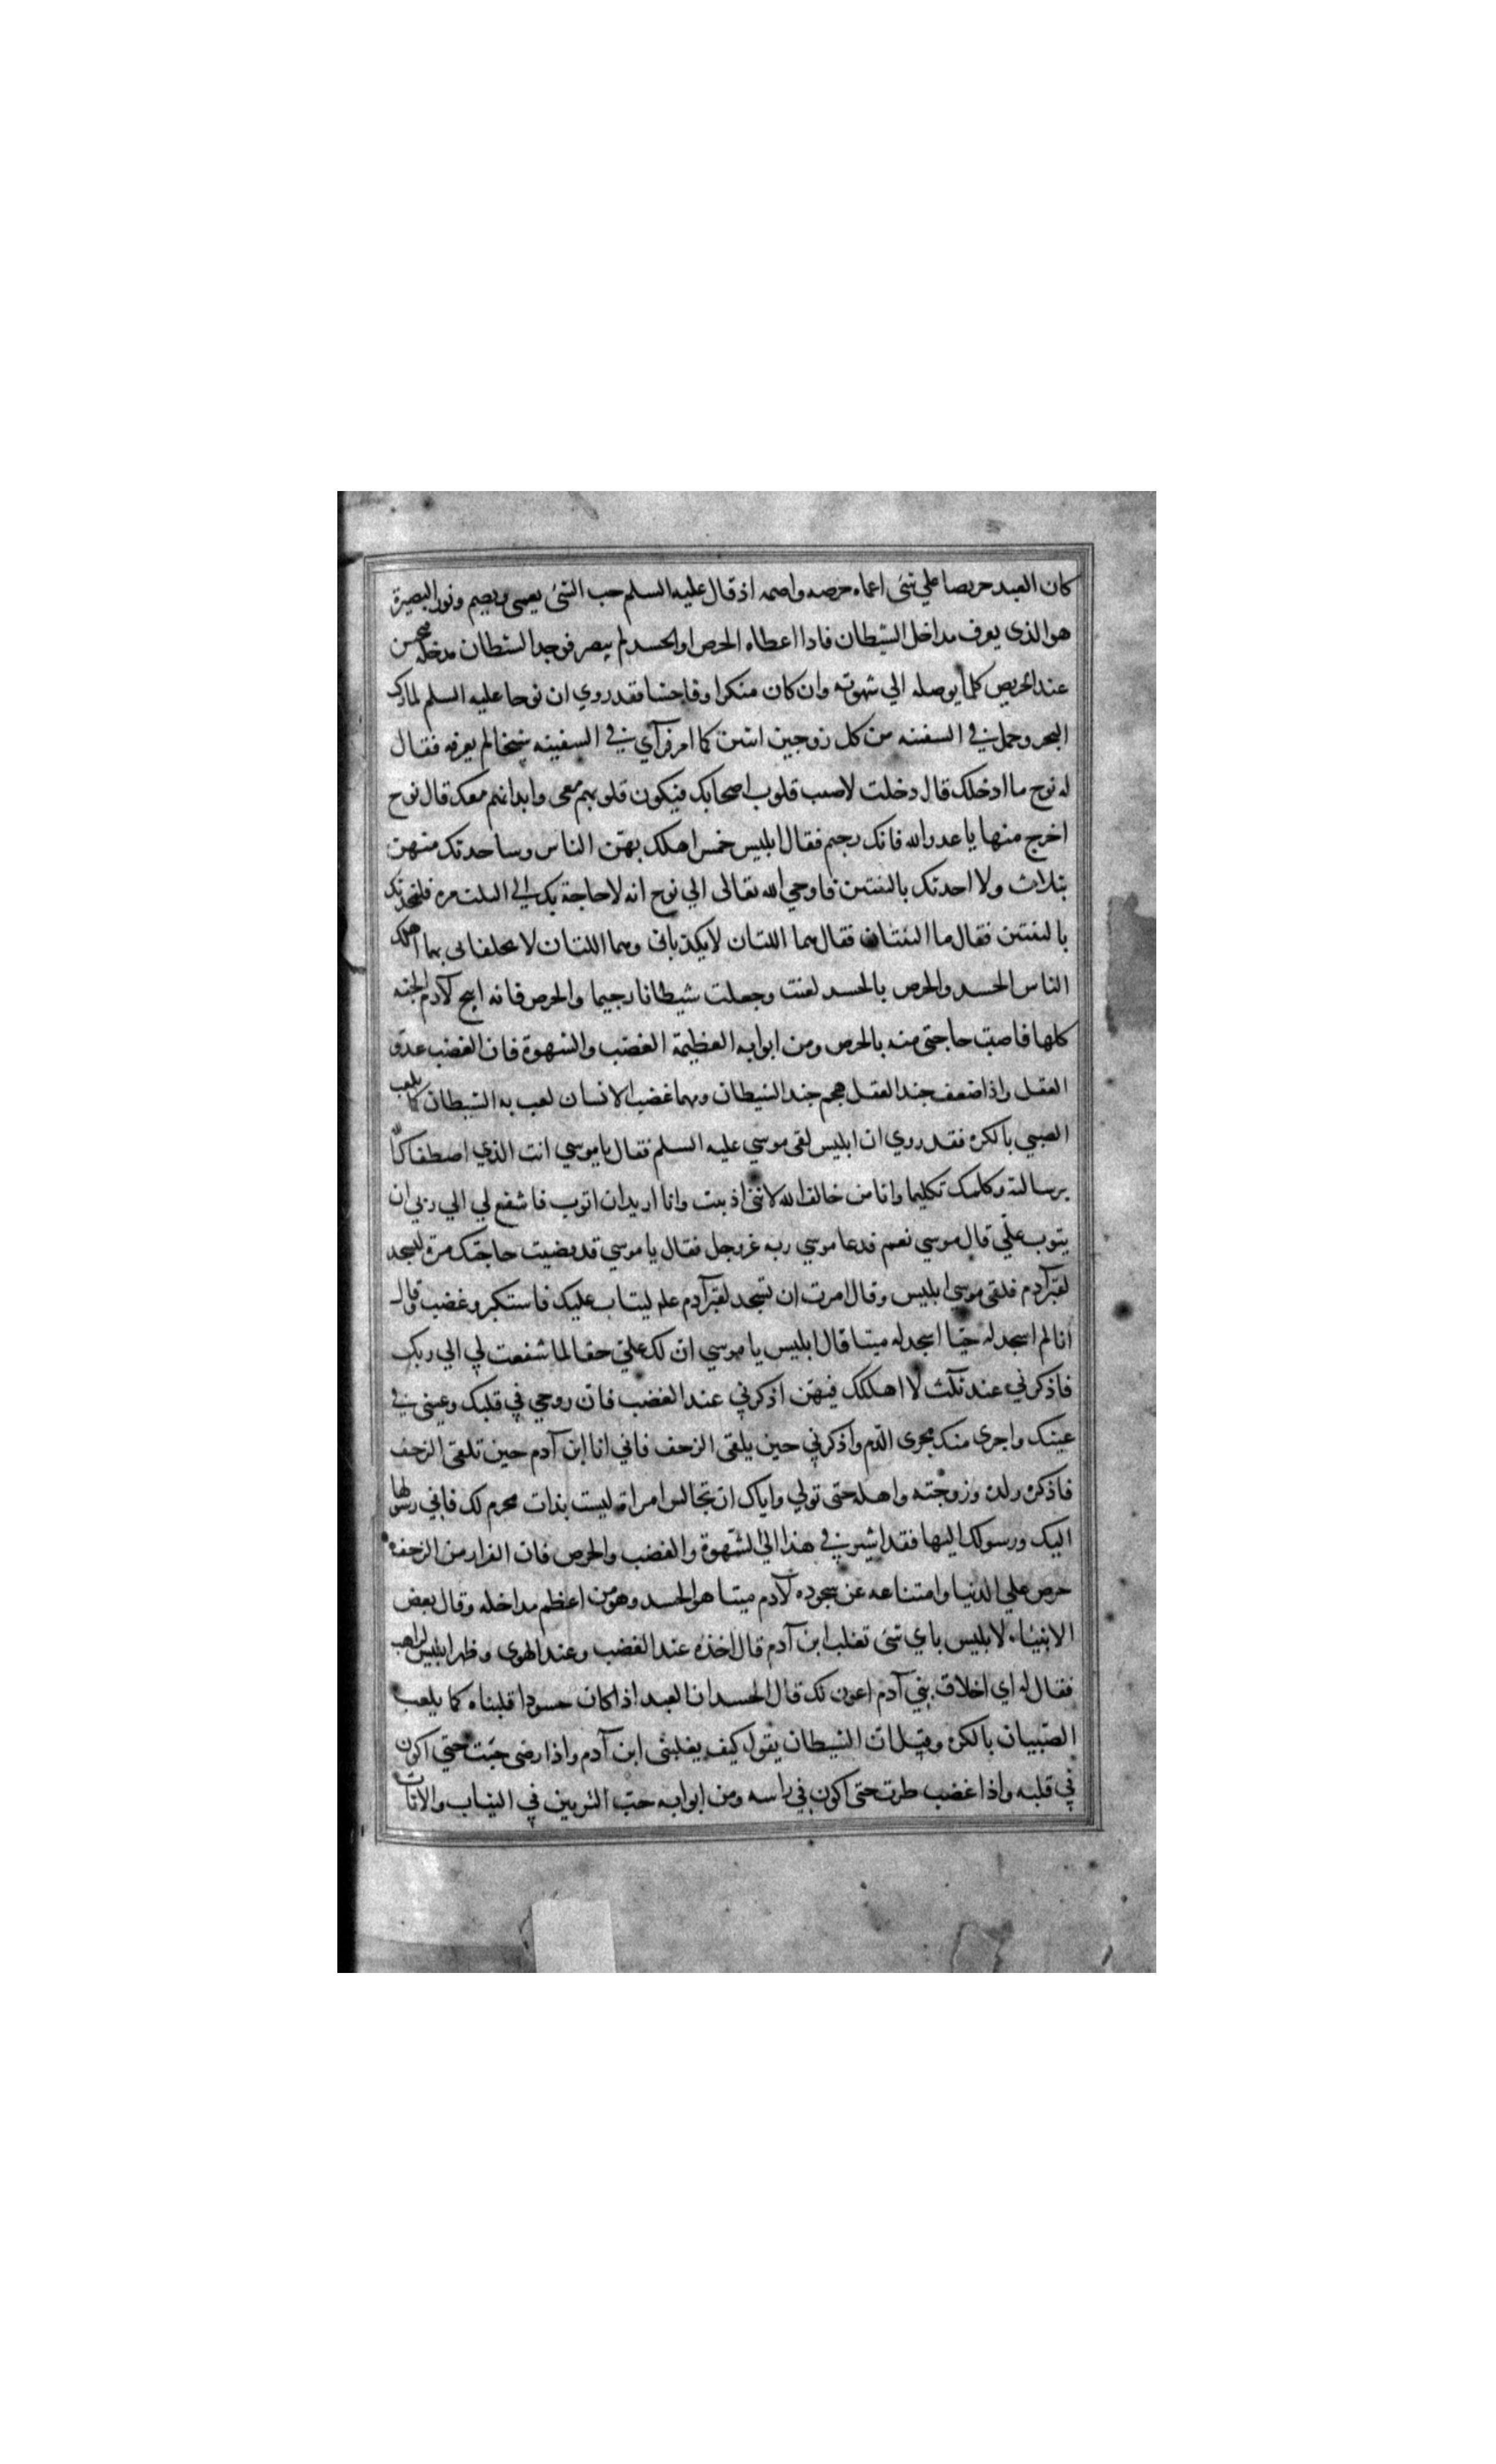 كان العبد حريصا علي شئ اعماه حرصه واصمه اذ قال عليه السلم حب الشئ يعمى ويصم ونور البصيرة
هو الذى يعرف مداخل الشيطان فاذا اعطاه الحرص او الحسد لم يبصر فوجد الشطان مدخله محسن
عند الحريص كلما يوصله الي شهوته وان كان منكرا وفاحشا فقد روي ان نوحا عليه السلم لما ركب
البحر وحمل في السفينه من كل زوجين اثنين كما امر فرآي في السفينه شيخا لم يعرفه فقال
له نوح ما ادخلك قال دخلت لاصيب قلوب اصحابك فيكون قلوبهم معى وابدانهم معك قال نوح
اخرج منها يا عدو الله فانك رجيم فقال ابليس خمس اهلك بهن الناس وساحدثك منهن
بثلاث ولا احدثك بالثنتين فاوحي الله تعالى الي نوح انه لا حاجة بك الي الثلث مره فليحدثك
بالثنتين فقال ما الثنتان فقال هما اللتان لا يكذباني وهما اللتان لا يخلفانى بهما اهلك
الناس الحسد والحرص بالحسد لعنت وجعلت شيطانا رجيما والحرص فانه ابيح لآدم الجنه
كلها فاصبت حاجتى منه بالحرص ومن ابوابه العظيمة الغضب والشهوة فان الغضب عدو
العقل واذا ضعف جند العقل هجم جند الشيطان ومهما غضب الانسان لعب به الشيطان كما يلعب
الصبي بالكره فقد روي ان ابليس لقى موسي عليه السلم فقال يا موسي انت الذي اصطفاك الله
برسالته وكلمك تكليما وانا من خالف الله لاننى اذنبت وانا اريد ان اتوب فاشفع لي الي ربي ان
يتوب علّي قال موسي نعم فدعا موسي ربه عز وجل فقال يا موسي قد قضيت حاجتك مره ليسجد
لقبر آدم فلقى موسى ابليس وقال امرت ان تسجد لقبر آدم علم ليتاب عليك فاستكبر وغضب وقال
انا لم اسجد له حيّا اسجد له ميتا قال ابليس يا موسي ان لك علّي حقا لما شفعت لي الي ربك
فاذكرني عند ثلث لا اهلكك فيهن اذكرني عند الغضب فان روحي في قلبك وعينى في
عينك واجرى منك مجرى الدّم واذكرني حين يلقى الزحف فاني انا ابن آدم حين تلقى الزحف
فاذكره ولده وزوجته واهله حتى تولي واياك ان تجالس امراة ليست بذات محرم لك فاني رسولها
اليك ورسولك اليها فقد اشير في هذا الي الشهوة والغضب والحرص فان الفرار من الزحف
حرص علي الدنيا وامتناعه عن سجوده لآدم ميتا هو الحسد وهو من اعظم مداخله وقال بعض
الانبياء لابليس باي شئ تغلب ابن آدم قال اخذه عند الغضب وعند الهوى وظهر ابليس لراهب
فقال له اي اخلاق بني آدم اعون لك قال الحسد ان العبد اذا كان حسودا قلبناه كما يلعب
الصّبيان بالكره وقيل ان الشيطان يقول كيف يغلبنى ابن آدم واذا رضى جئت حتي اكون
في قلبه واذا غضب طرت حتى اكون في راسه ومن ابوابه حبّ التزيين في الثياب والاثاث